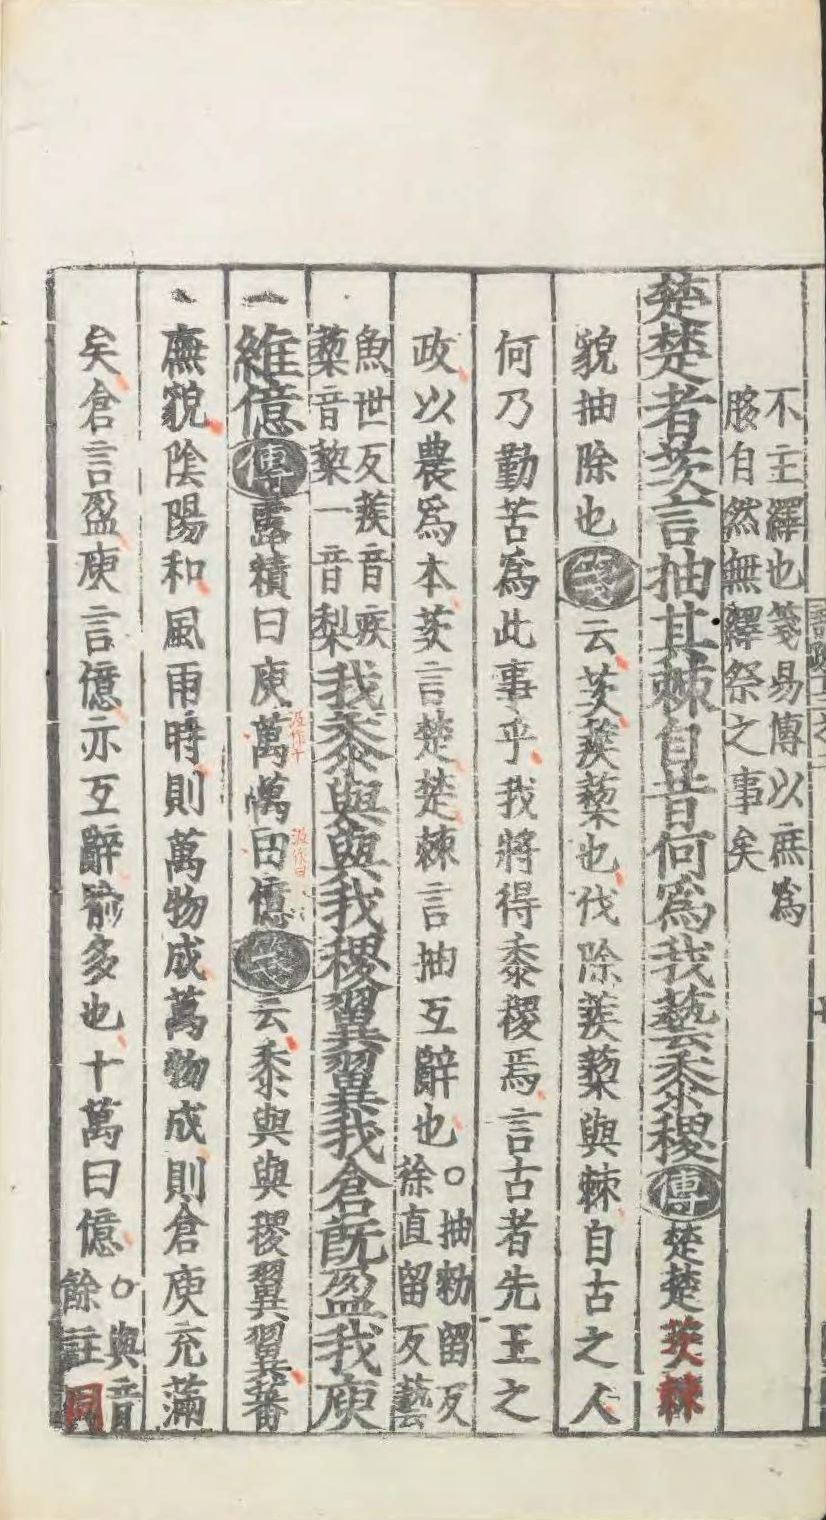 不主繹也箋易傳以庶爲
䏑自然無繹祭之事矣
楚楚者茨言抽其棘自昔何爲我藝黍稷傳楚楚茨棘
貌抽除也箋云茨蒺藜也伐除蒺藜與棘自古之人
何乃勤苦爲此事乎我將得黍稷焉言古者先王之
政以農爲本茨言楚楚棘言抽互辭也○抽勑留反
徐直留反藝
魚世反蒺音疾
藜音黎一音梨我黍與與我稷翼翼我倉既盈我庾
維億傳露積曰庾萬萬曰億箋云黍與與稷翼翼蕃
汲作十
汲作曰
廡貌陰陽和風雨時則萬物成萬物成則倉庾充滿
矣倉言盈庾言億亦互辭喻多也十萬曰億○與音
餘註同